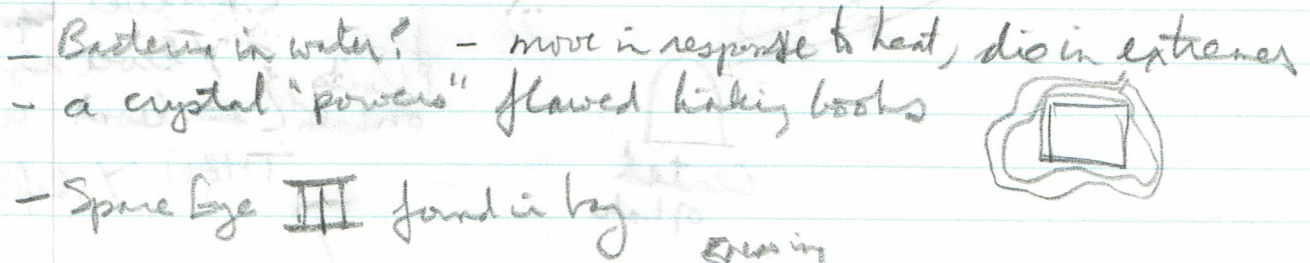 - Bacteria in water? - move in response to heat, die in extremes
- a crystal "powers" flawed linking books
- Spare Eye III found in bag